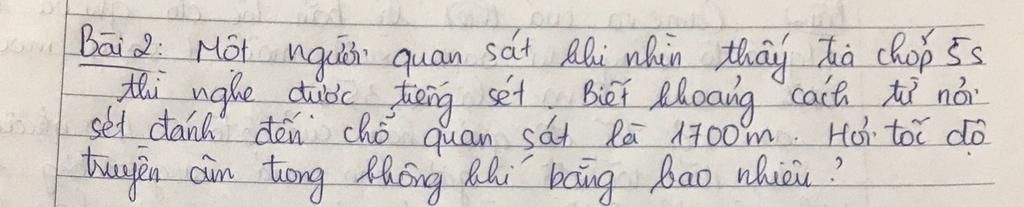 Bài 2: Một người quan sát khi nhìn thấy tia chớp 5s
thì nghe được tiếng sét. Biết khoảng cách từ nơi
sét đánh đến chỗ quan sát là 1700m. Hỏi tốc độ
truyền âm trong không khí bằng bao nhiêu?